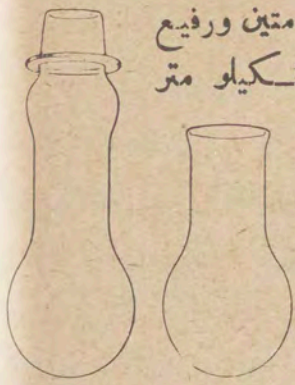 متين ورفيع
ـكيلو متر